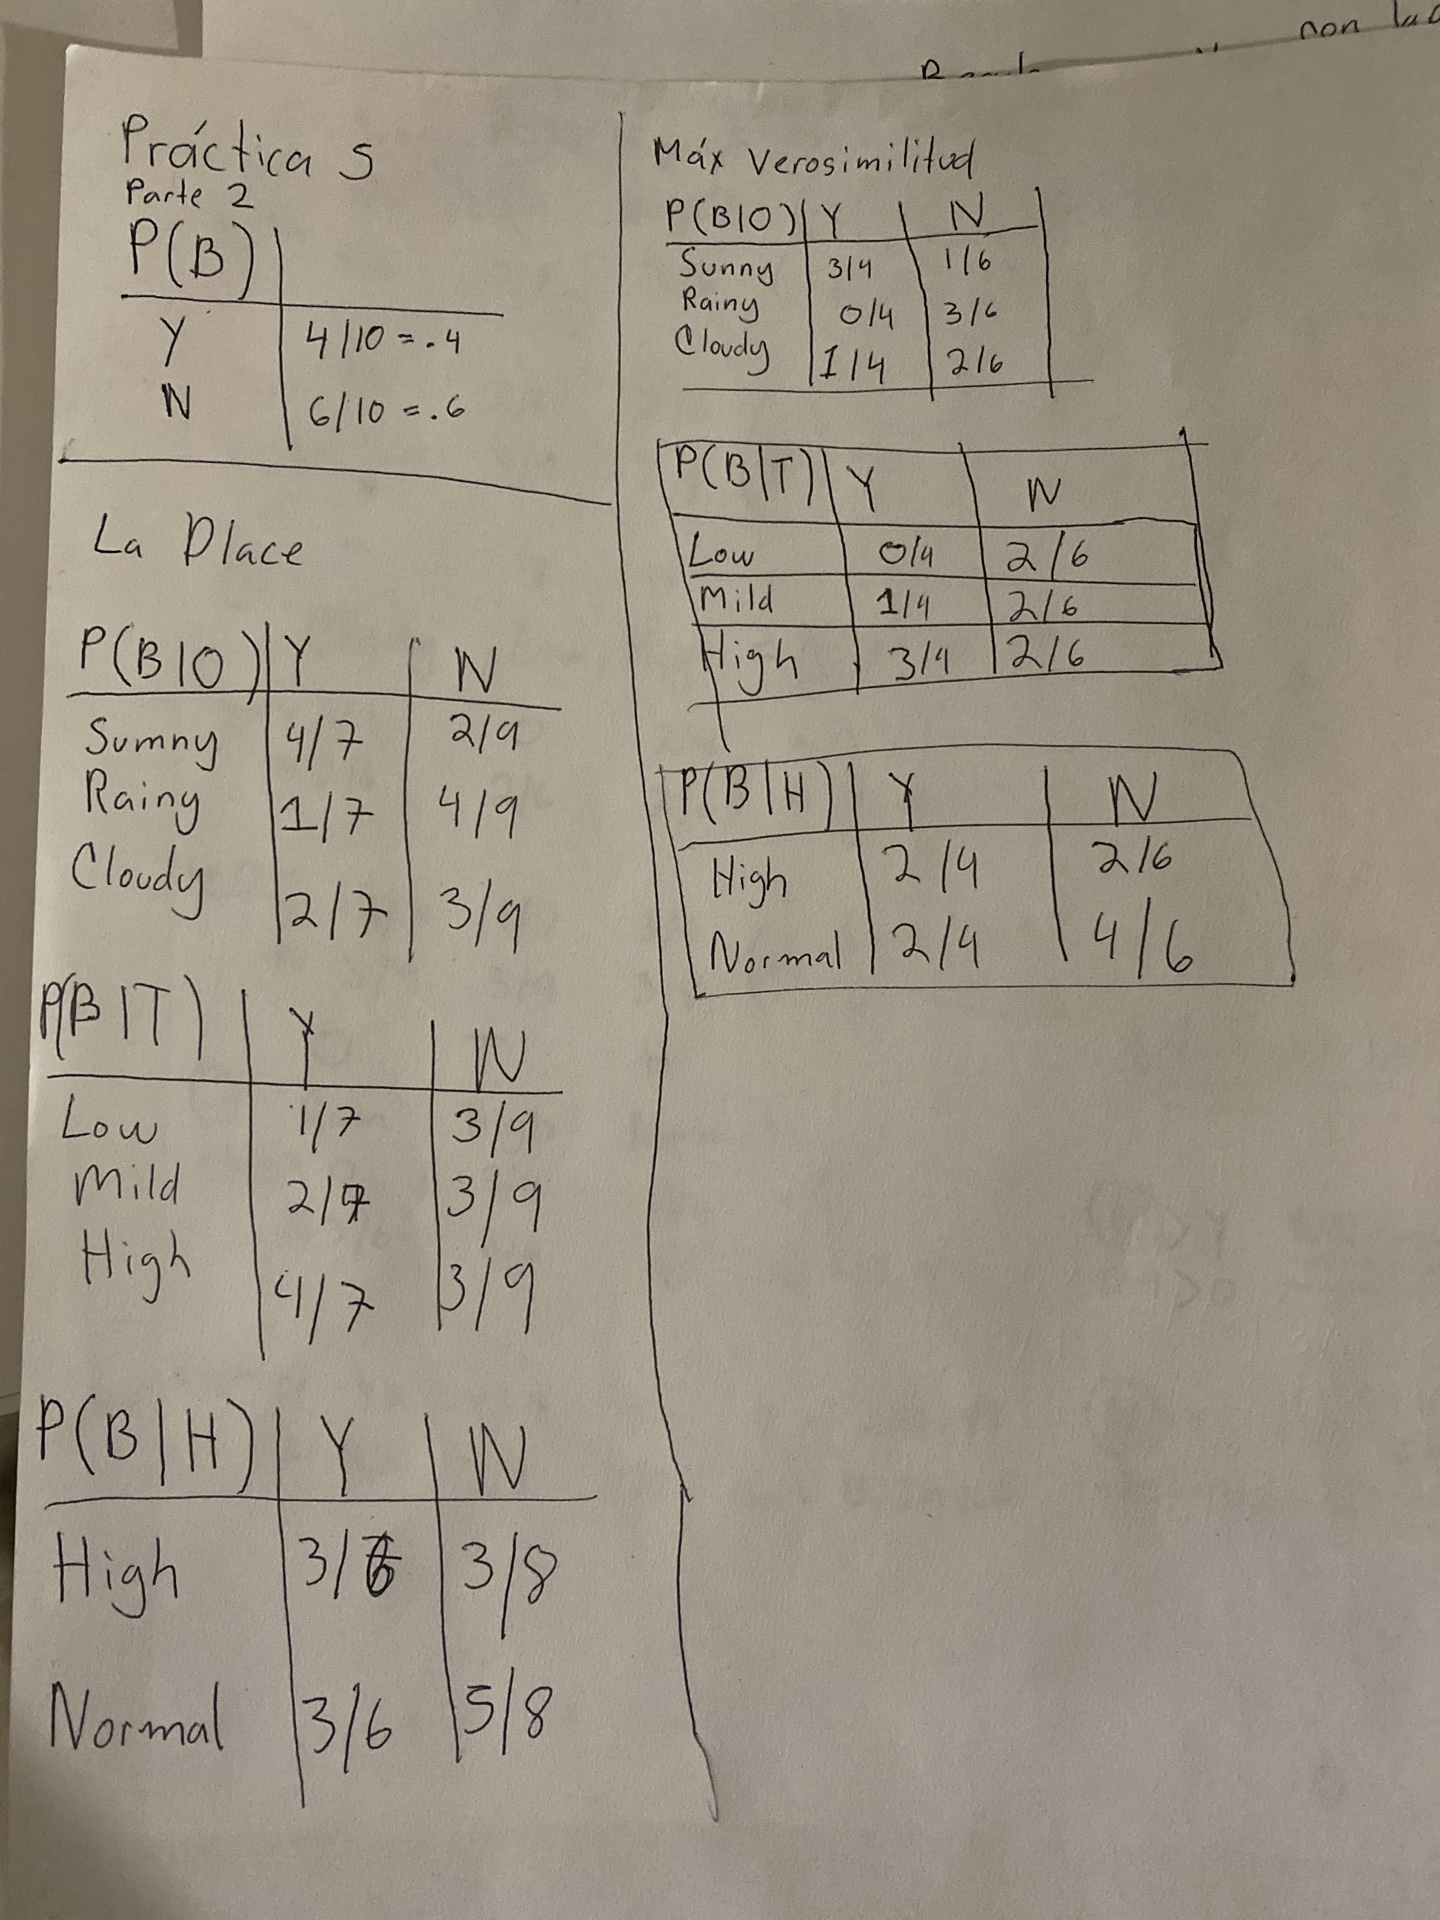 non
Práctica 5
Parte 2
P(B)
Y 4/10 = .4
N 6/10 = .6
La Place
P(B|O) Y N
Sunny 4/7 2/9
Rainy 1/7 4/9
Cloudy 2/7 3/9
P(B|T) Y N
Low 1/7 3/9
Mild 2/7 3/9
High 4/7 3/9
P(B|H) Y N
High 3/6 3/8
Normal 3/6 5/8
Máx Verosimilitud
P(B|O) Y N
Sunny 3/4 1/6
Rainy 0/4 3/6
Cloudy 1/4 2/6
P(B|T) Y N
Low 0/4 2/6
Mild 1/4 2/6
High 3/4 2/6
P(B|H) Y N
High 2/4 2/6
Normal 2/4 4/6